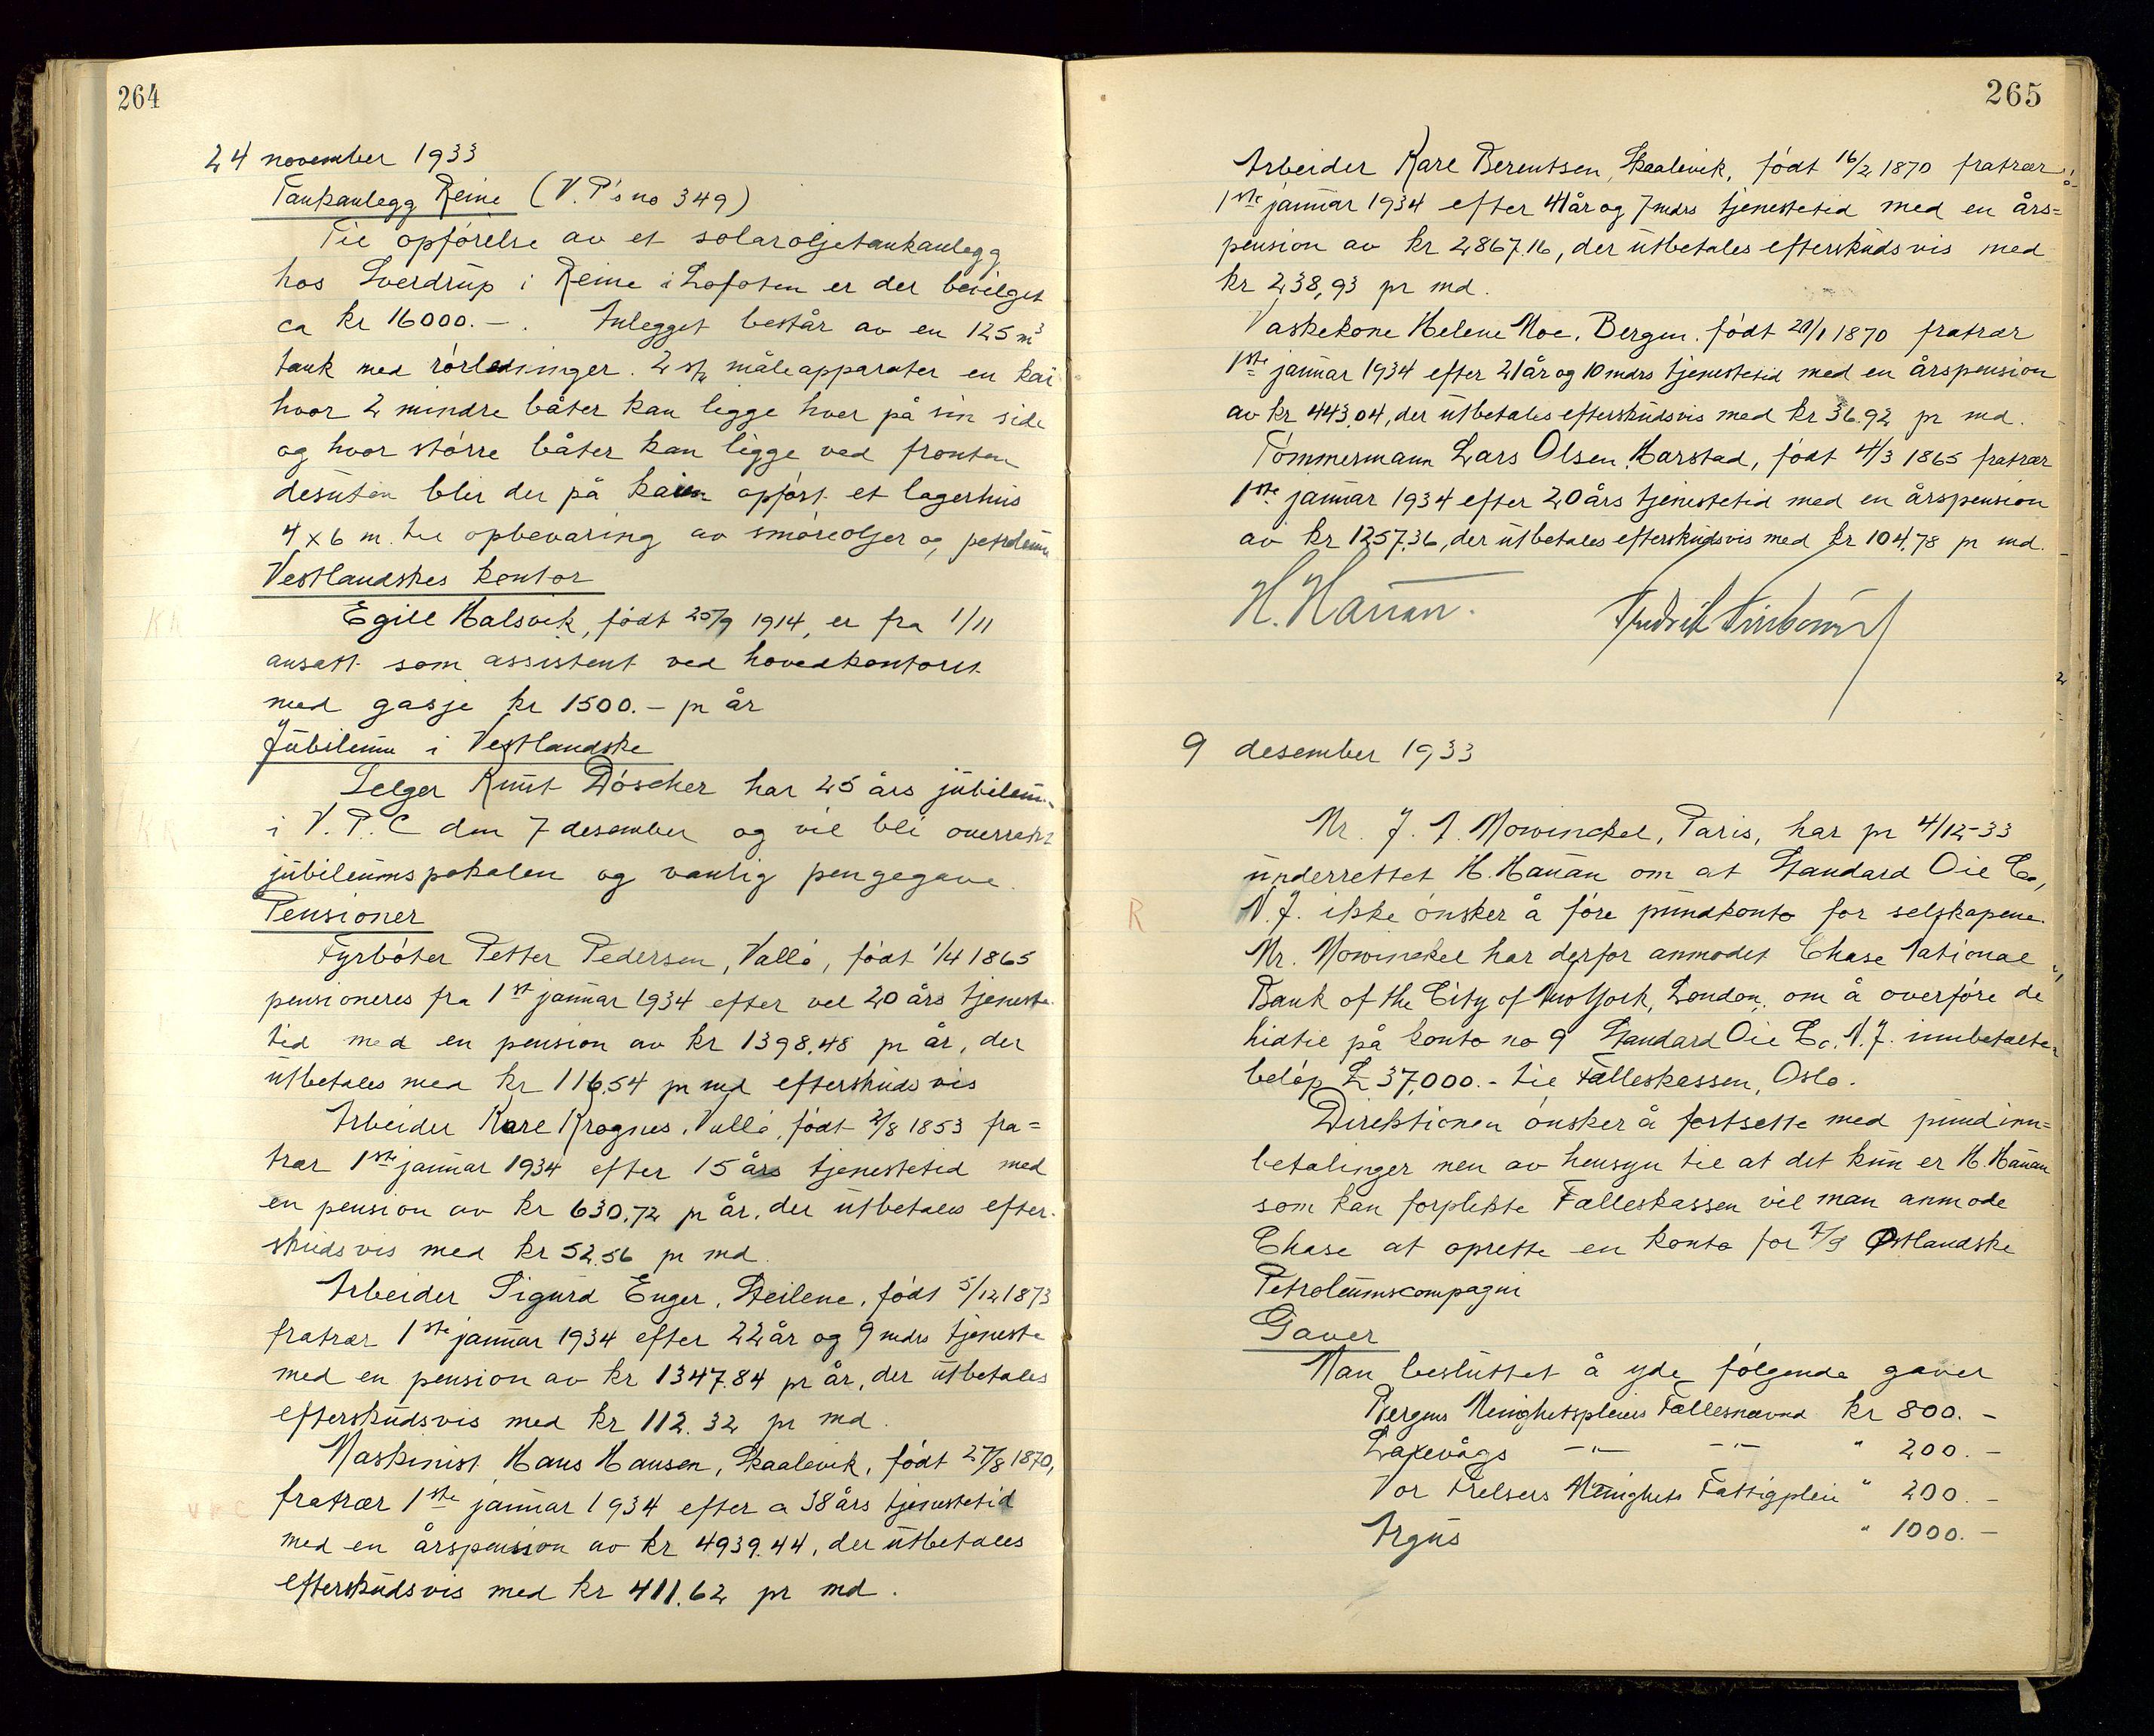 264
24 november 1933
Tankanlegg Reine (V.P's no 349)
Til opførelse av et solaroljetankanlegg
hos Sverdrup i Reine i Lofoten er der bevilget
ca kr 16000.-. Anlegget består av en 125 m³
tank med rørledninger. 2 stk måleapparater en kai
hvor 2 mindre båter kan legge hver på sin side
og hvor større båter kan ligge ved fronten
desuten blir der på kaien opført et lagerhus
4 x 6 m. til opbevaring av smøreoljer og petroleum
Vestlandskes kontor
Egill Halsvik, født 25/9 1914, er fra 1/11
ansatt som assistent ved hovedkontoret
med gasje kr 1500.- pr år
Jubileum i Vestlandske
Selger Knut Döscher har 25 års jubileum
i V.P.C den 7 desember og vil bli overrakt
jubileumspokalen og vanlig pengegave.
Pensioner
Fyrbøter Petter Pedersen, Vallø, født 1/4 1865
pensioneres fra 1st januar 1934 efter vel 20 års tjeneste-
tid med en pension av kr 1398,48 pr år, der
utbetales med kr 116.54 pr md efterskudsvis
Arbeider Karl Krognes, Vallø, født 2/8 1853 fra=
trær 1ste januar 1934 efter 15 års tjenestetid med
en pension av kr 630.72 pr år, der utbetales efter-
skudsvis med kr 52.56 pr md.
Arbeider Sigurd Enger, Steilene, født 5/12 1873
fratrær 1ste januar 1934 efter 22 år og 9 mdrs tjeneste
med en pension av kr 1347.84 pr år, der utbetales
efterskudsvis med kr 112.32 pr md.
Maskinist Hans Hansen, Skaalevik, født 27/8 1870,
fratrær 1ste januar 1934 efter a 38 års tjenestetid
med en årspension av kr 4939.44, der utbetales
efterskudsvis med kr 411.62 pr md.
265
Arbeider Karl Berentsen, Skaalevik, født 16/2 1870 fratrær
1ste januar 1934 efter 41 år og 7 mdrs tjenestetid med en års=
pension av kr 2867.16, der utbetales efterskudsvis med
kr 238,93 pr md.
Vaskekone Helene Moe, Bergen, født 21/1 1870 fratrær
1ste januar 1934 efter 21 år og 10 mdrs tjenestetid med en årspension
av kr 443.04, der utbetales efterskudsvis med kr 36.92 pr md.
Tømmermann Lars Olsen, Harstad, født 4/3 1865 fratrær
1ste januar 1934 efter 20 års tjenestetid med en årspension
av kr 1257.36, der utbetales efterskudsvis med kr 104.78 pr md.
H. Hanan. Fredrik
9 desember 1933
Mr. J. A. Mowinckel, Paris, har pr 4/12-33
underrettet H. Hanan om at Standard Oil Co,
R
N.J. ikke ønsker å føre pundkonto for selskapene.
Mr. Mowinckel har derfor anmodet Chase National
Bank of the City of New York, London, om å overføre de
hidtil på konto no 9 Standard Oil Co. N.J. innbetalte
beløp £ 37,000.- til Fælleskassen, Oslo.
Direktionen ønsker å fortsette med pundinn=
betalinger men av hensyn til at det kun er H. Hanan
som kan forplikte Fælleskassen vil man anmode
Chase at oprette en konto for A/S Østlandske
Petroleumscompagni
Gaver
Man besluttet å yde følgende gaver
Bergens Menighetspleies Fællesnævnd kr 800.-
Laxevågs -"- -"- " 200.-
Vor Frelsers Menighets Fattigpleie " 200.-
Argus " 1000.-